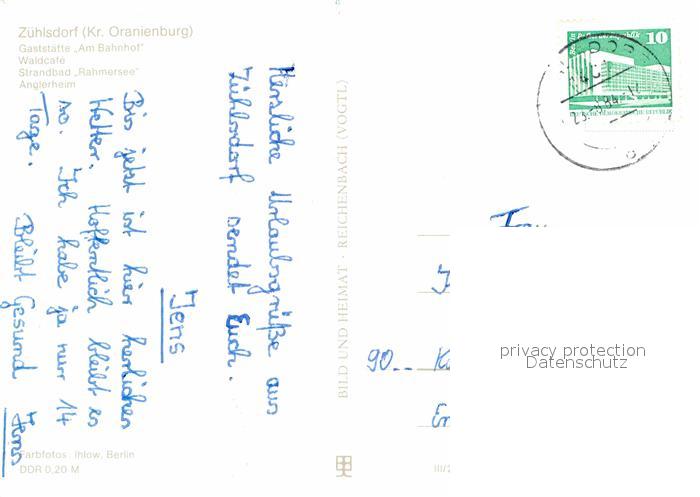 Zühlsdorf (Kr. Oranienburg)
Gaststätte „Am Bahnhof"
Waldcafé
Strandbad „Rahmersee"
Anglerheim
Herzliche Urlaubsgrüße aus
Zühlsdorf sendet Euch.
Jens
Bis jetzt ist hier herrliches
Wetter. Hoffentlich bleibt es
so. Ich habe ja nur 14
Tage. Bleibt Gesund Jens
Farbfotos: Ihlow, Berlin
DDR 0,20 M
BILD UND HEIMAT · REICHENBACH (VOGTL)
10
DEUTSCHE DEMOKRATISCHE REPUBLIK
90..
privacy protection
Datenschutz